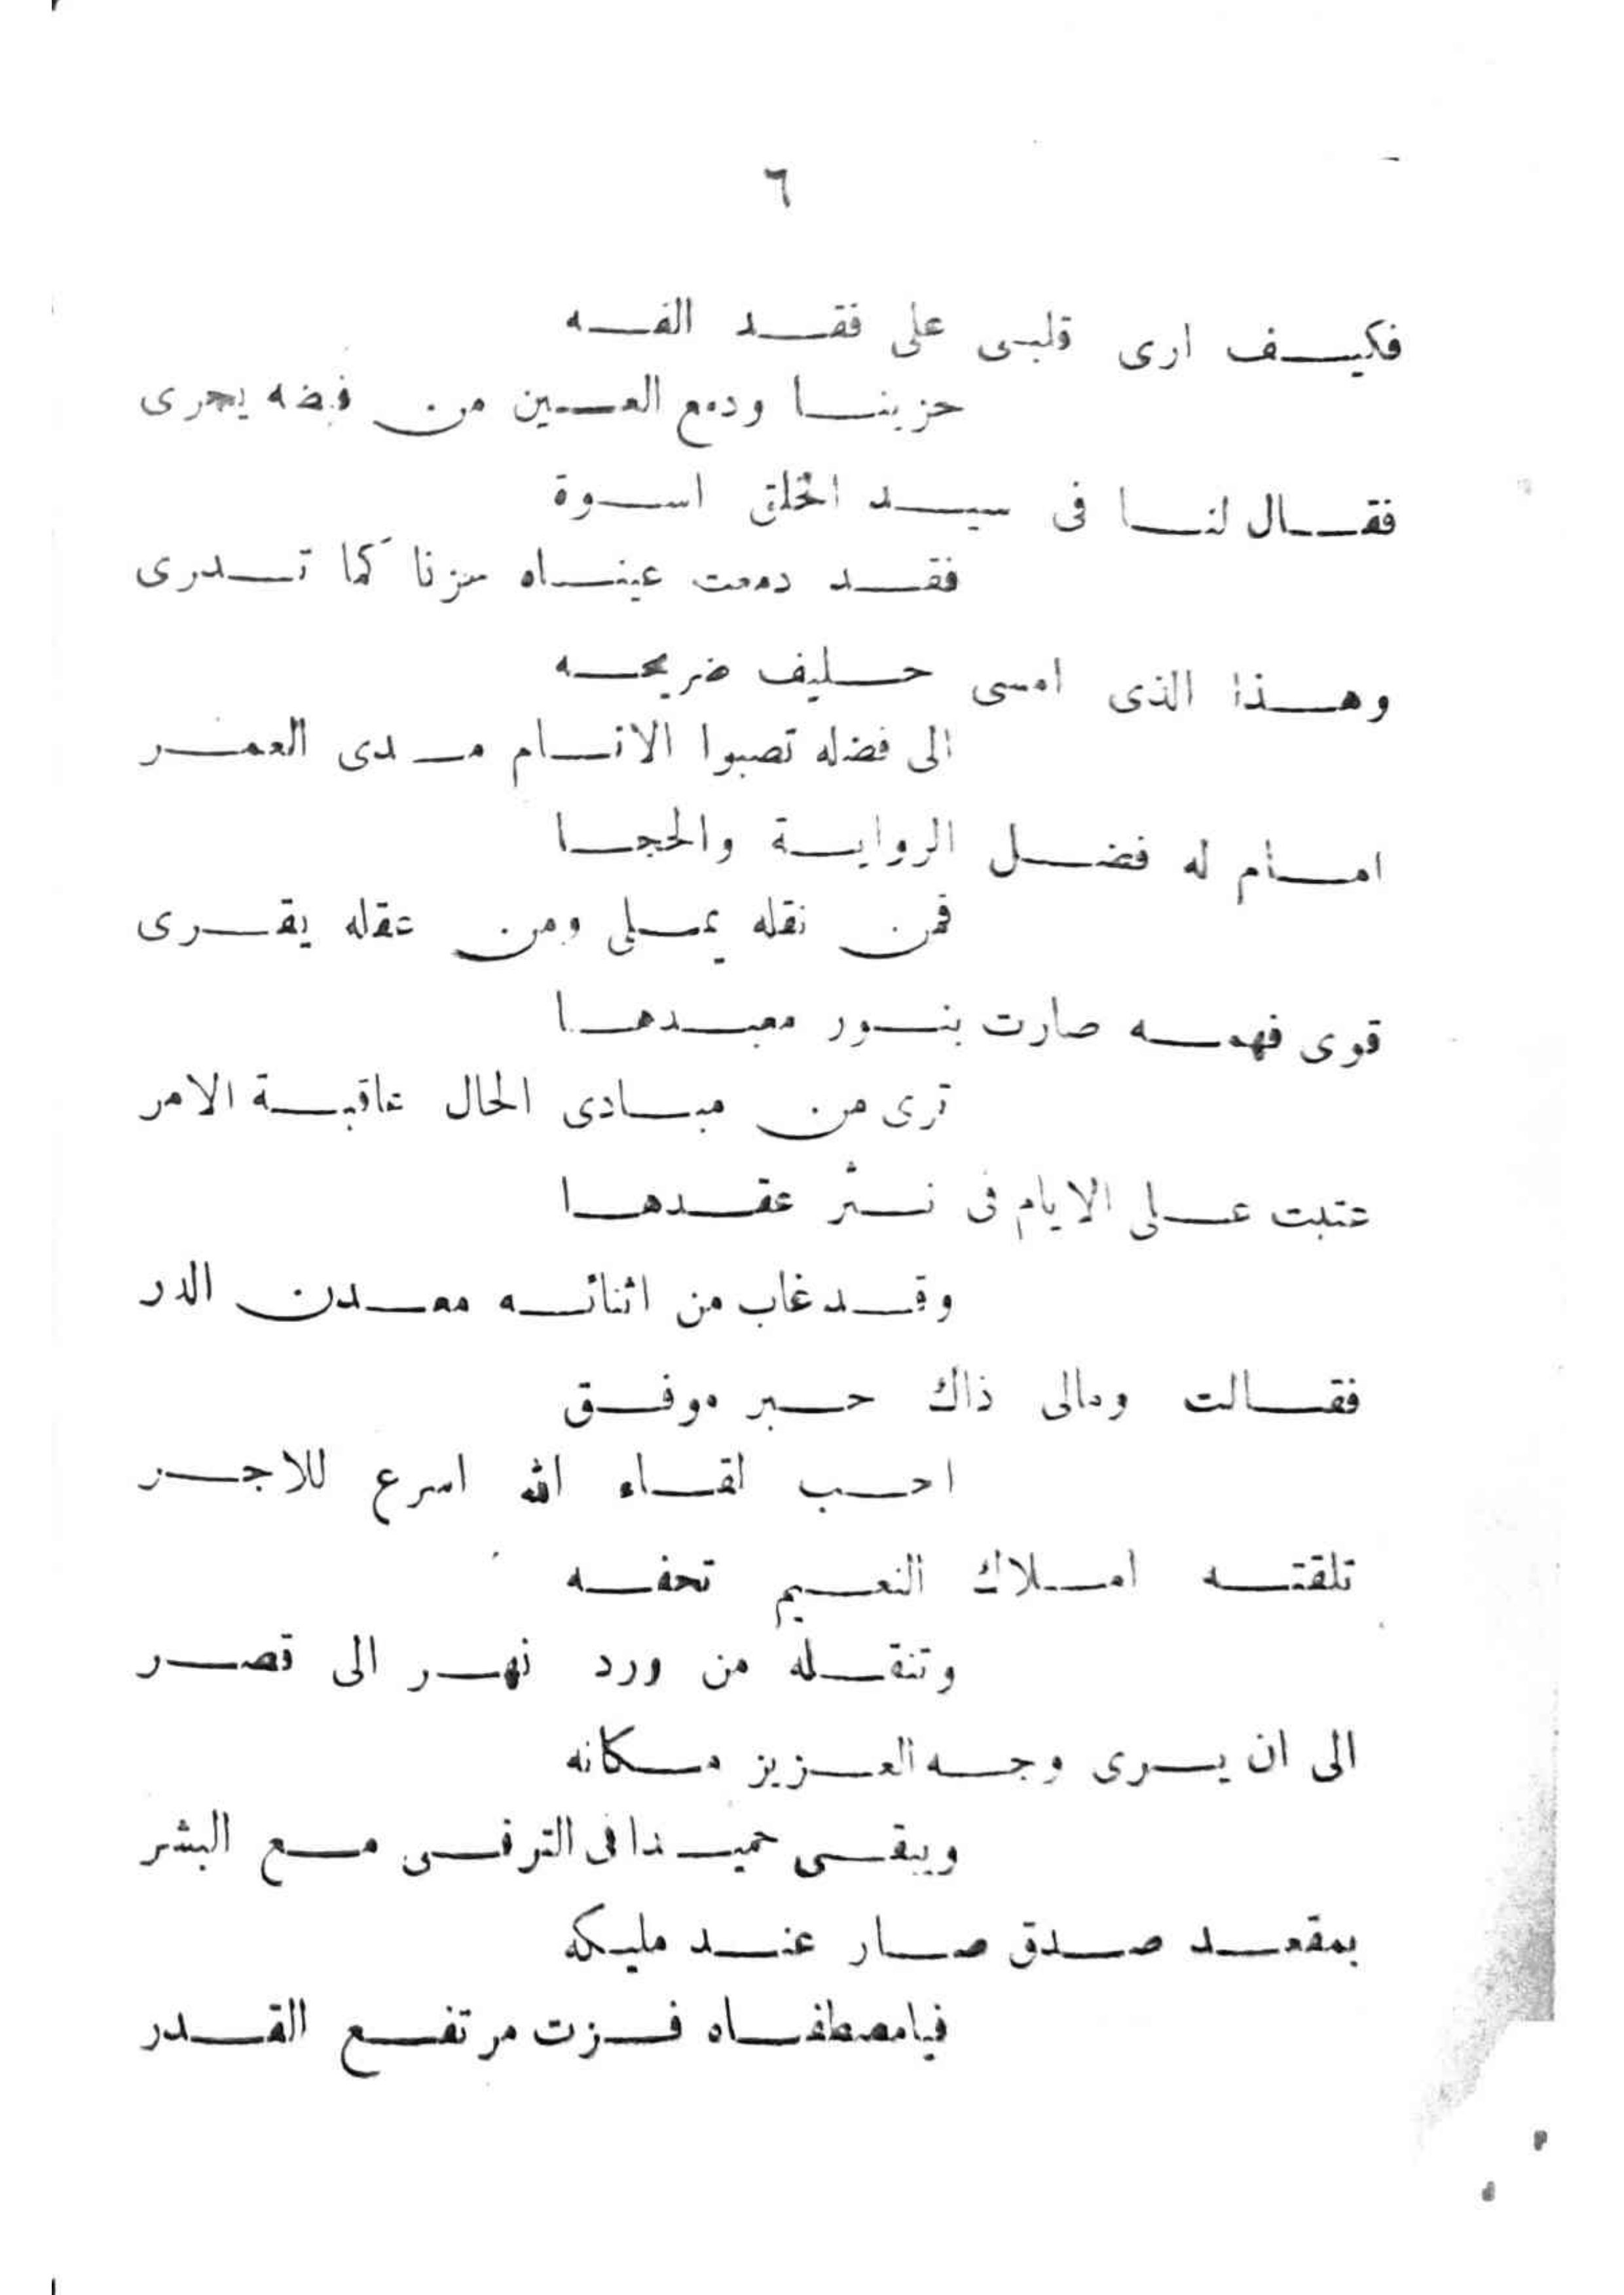 ٦
فكيف ارى قلبى على فقد الفه
حزينا ودمع العين من فيضه يجرى
فقال لنا فى سيد الخلق اسوة
فقد دمعت عيناه حزنا كما تدرى
وهذا الذى امسى حليف ضريحه
الى فضله تصبوا الانام مدى العمر
امام له فضل الرواية والحجا
فمن نقله يملى ومن عقله يقرى
قوى فهمه صارت بنور معيدها
ترى من مبادى الحال عاقبة الامر
عتبت على الايام فى نثر عقدها
وقد غاب من اثنائه معدن الدر
فقالت ومالى ذاك حبر موفق
احب لقاء الله اسرع للاجر
تلقته املاك النعيم تحفه
وتنقله من ورد نهر الى قصر
الى ان يرى وجه العزيز مكانه
ويبقى حميدا فى الترقى مع البشر
بمقعد صدق صار عند مليكه
فيامصطفاه فزت مرتفع القدر